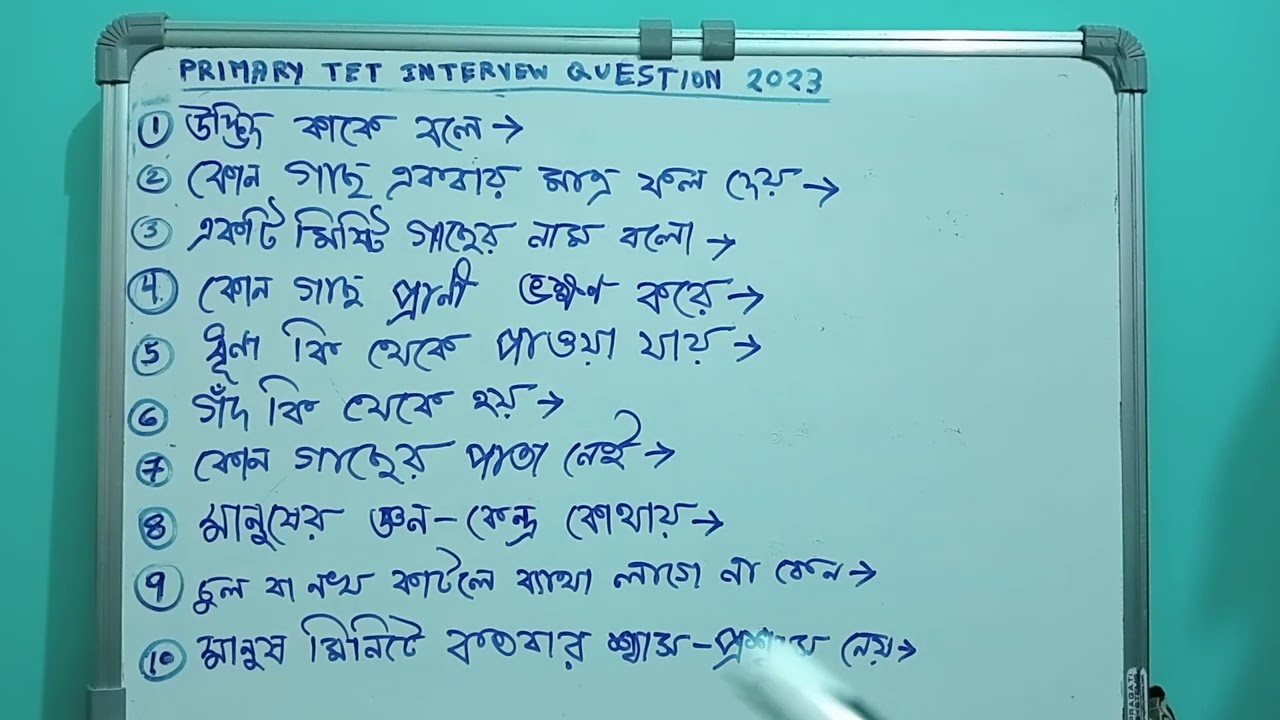 PRIMARY TET INTERVIEW QUESTION 2023
① উদ্ভিদ কাকে বলে →
② কোন গাছ একবার মাত্র ফল দেয় →
③ একটি মিষ্টি গাছের নাম বলো →
④ কোন গাছ প্রাণী ভক্ষণ করে →
⑤ ধূনা কি থেকে পাওয়া যায় →
⑥ গঁদ কি থেকে হয় →
⑦ কোন গাছের পাতা নেই →
⑧ মানুষের জ্ঞান-কেন্দ্র কোথায় →
⑨ চুল বা নখ কাটলে ব্যাথা লাগে না কেন →
⑩ মানুষ মিনিটে কতবার শ্বাস-প্রশ্বাস নেয় →